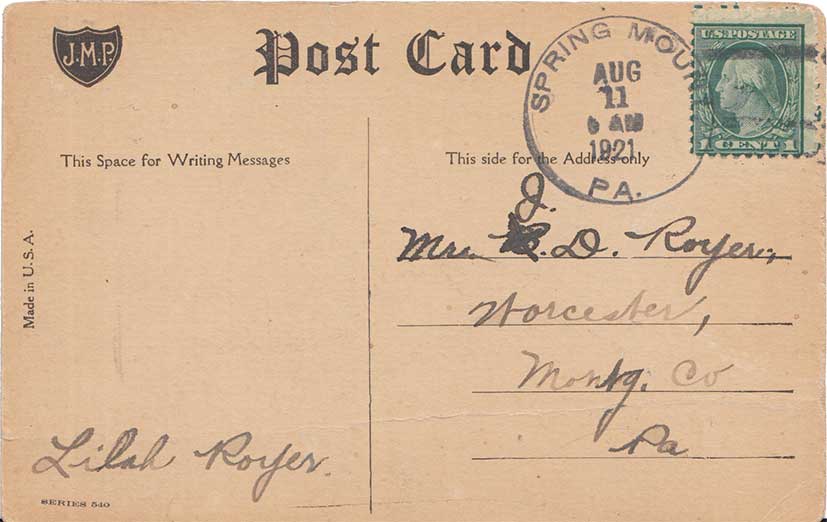 J.M.P.
Post Card
SPRING MOU
AUG
11
AM
1921
PA.
U.S. POSTAGE
1 CENT 1
This Space for Writing Messages
This side for the Address only
J.
Mrs. D. Royer,
Worcester,
Montg. Co
Pa
Made in U. S. A.
Lilah Royer.
SERIES 540